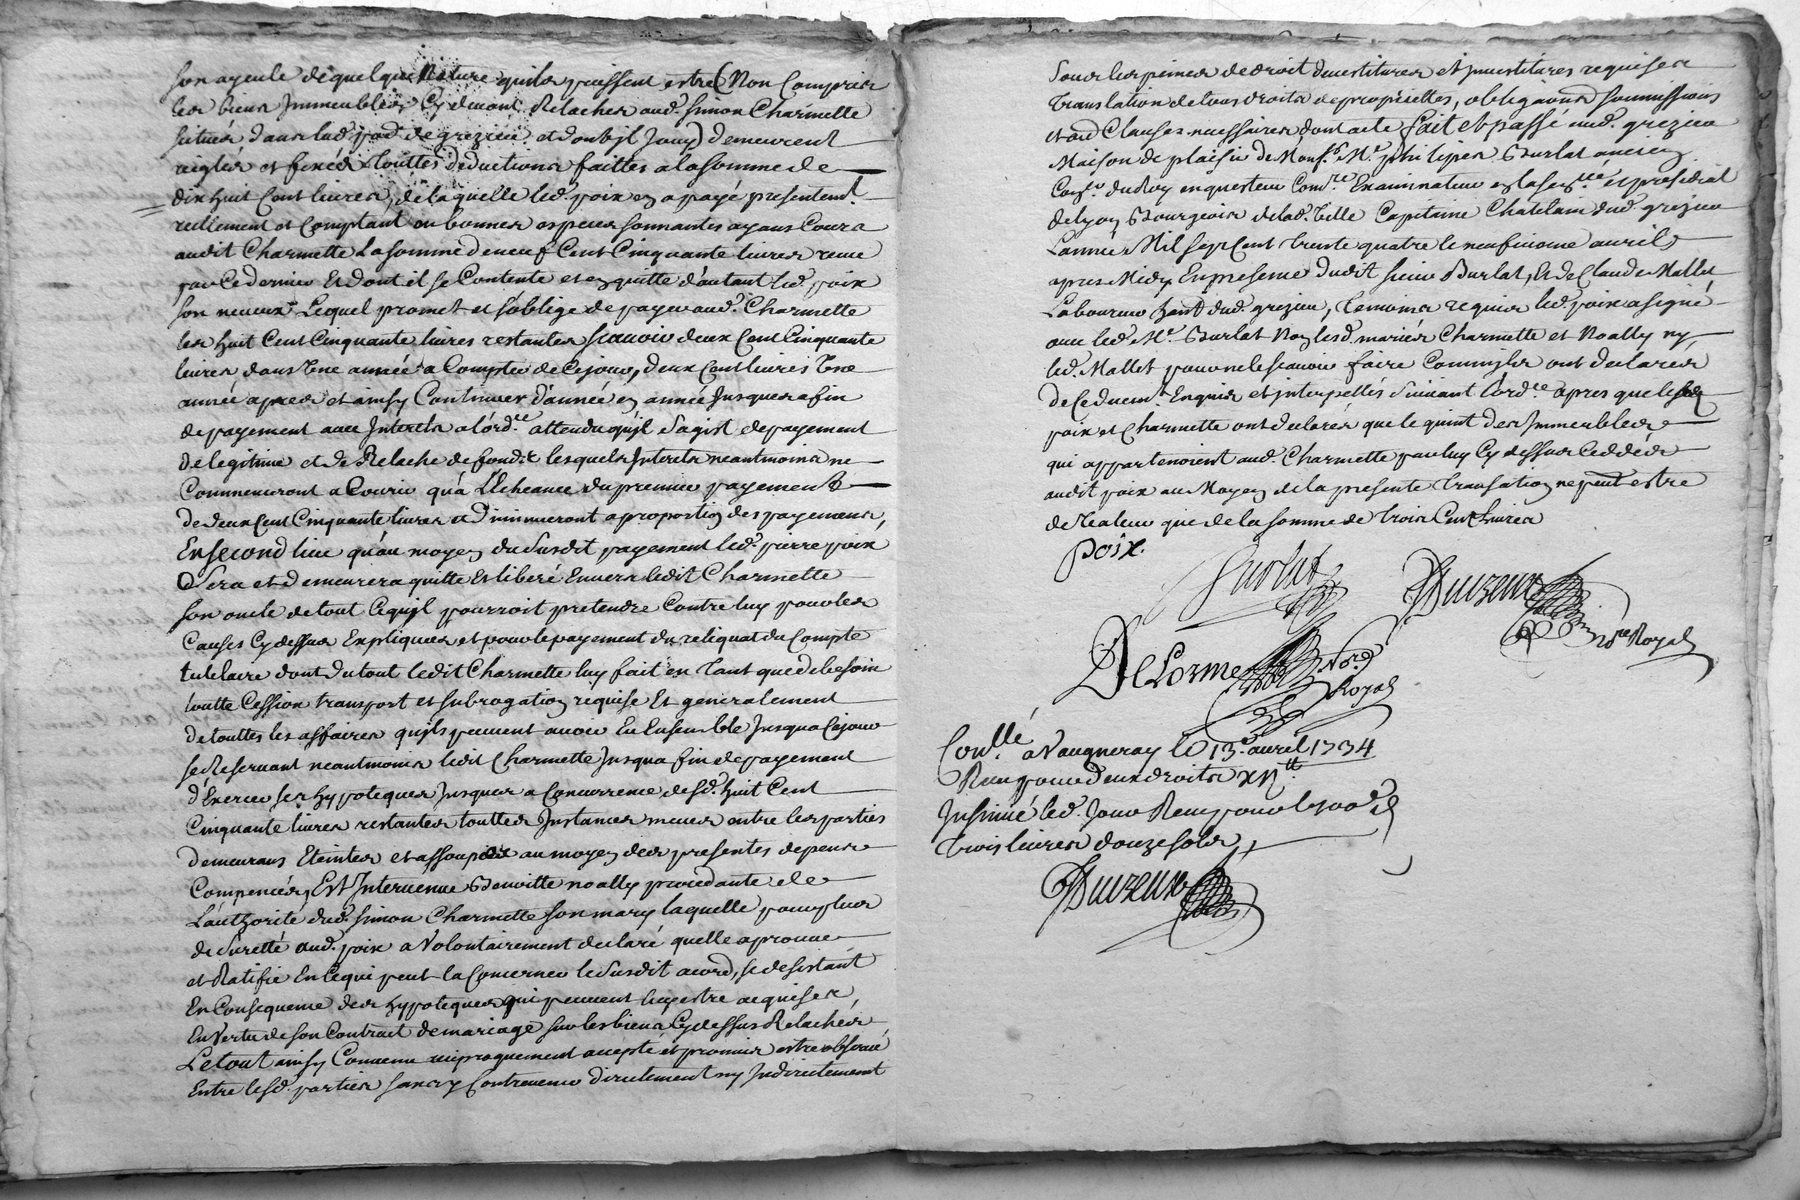 son ayeule de quelque Nature quils puissent estre (Non Compris
les biens Immeubles Cy devant Relaches aud. Simon Charmette
situés dans lad. par. de grezieu et dont il Jouy) demeurent
reiglés et fixés touttes deductions faittes a la somme de
dix huit Cent livres, de laquelle led. poix en a payé presentemt.
reellement et Comptant en bonnes especes sonnantes ayans Cours
audit Charmette La somme de neuf Cent Cinquante livres receue
par Ce dernier Et dont il se Contente et en quitte d'autant led. poix
son neveux Lequel promet et s'oblige de payer aud. Charmette
les huit Cent Cinquante livres restantes scauoir deux Cent Cinquante
livres dans Une année a Compter de Cejour, deux Cent livres Une
année apres et ainsy Continuer d'année en année Jusques a fin
de payement avec Interets a l'ord.re attendu qu'il s'agist de payement
de legitime et de Relache de fonds lesquels Interets neantmoins ne
Commenceront a Courir qu'a L'Echeance du premier payement
de deux Cent Cinquante livres et Diminueront a proportion des payemens,
En second lieu qu'au moyen du Susdit payement led. pierre poix
Sera et demeurera quitte Et liberé Envers ledit Charmette
son oncle de tout Cequil pourroit pretendre Contre luy pour les
Causes Cy dessus Expliquées et pour le payement du reliquat du Compte
tutelaire dont du tout ledit Charmette luy fait en Tant que de besoin
toutte Cession transport et subrogation requise Et generalement
de touttes les affaires qu'ils peuvent avoir Eu Ensemble Jusqua Cejour
se Reservant neantmoins ledit Charmette Jusqua fin de payement
d'Exercer ses hypoteques Jusques a Concurrence desd. huit Cent
Cinquante livres restantes touttes Instances meues entre les parties
demeurans Eteintes et assoupies au moyen des presentes depens
Compencés, Est Intervenue Benoitte noally procedante de
L'authorité dud. Simon Charmette son mary laquelle pour plus
de Suretté aud. poix a Volontairement declaré quelle aprouve
et Ratifie En Cequi peut la Concerner le Susdit acord, se desistant
En Consequence des hypoteques qui peuvent luy estre acquises
En Vertu de son Contract de mariage sur les biens Cy dessus Relachés
Le tout ainsy Convenu reciproquement accepté et promis estre observé
Entre lesd. parties sans y Contrevenir directement ny Indirectement
Sous les peines de droit devestitures et Investitures requises
translation de tous droits de proprietes, obligaons soumissions
et aud Clauses necessaires dont acte fait et passé aud. grezieu
Maison de plaisir de Mons.r M.e philipes Burlat ancien
Con.er du Roy enquesteur Com.re Examinateur en la sen.ée et presidial
de lyon Bourgeois de lad. Ville Capitaine Chatelain dud. grezieu
L'année Mil sept Cent trente quatre le neufvieme avril
apres Midy En presence dudit sieur Burlat, Et de Claude Mallet
Laboureur hant dud. grezieu, temoins requis led. poix a signé
avec led. M.e Burlat Non lesd. mariés Charmette et Noally ny
led. Mallet pour ne le scauoir faire Comm'ils ont declaré
de Ce duem.t Enquis et interpellés suivant l'ord.ce apres que lesd.
poix et Charmette ont declarés que le quint des Immeubles
qui appartenoient aud. Charmette par luy Cy dessus Ceddés
audit poix au Moyen de la presente transation ne peut estre
de Valeur que de la somme de trois Cent livres
poix.
Burlat
DeLorme No.re Royal
no.re Royal
Con.llé a Vaugneray le 13.e avril 1734
Reçu pour deux droits
Insinué led. Jour Reçu pour le
trois livres douze sols